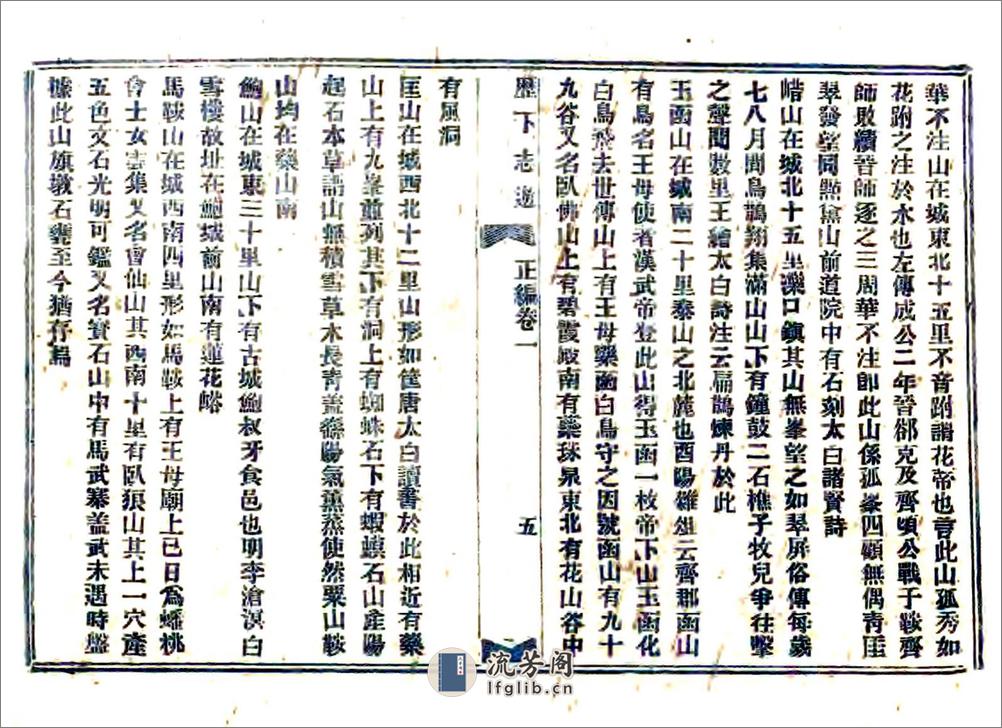 華不注山在城東北十五里不音跗謂花帝也言此山孤秀如
花跗之注於水也左傳成公二年晉郤克及齊頃公戰于鞍齊
師敗績晉師逐之三周華不注即此山係孤峯四顧無偶靑厓
翠發望同點黛山前道院中有石刻太白諸賢詩
㟙山在城北十五里濼口鎭其山無峯望之如翠屏俗傳每歲
七八月間鳥鵲翔集滿山山下有鐘鼓二石樵子牧兒爭往擊
之聲聞數里王繪太白詩注云扁鵲煉丹於此
玉函山在城南二十里泰山之北麓也酉陽雜俎云齊郡函山
有鳥名王母使者漢武帝登此山得玉函一枚帝下山玉函化
白鳥飛去世傳山上有王母藥函白鳥守之因號函山有九十
九谷又名臥佛山上有碧霞殿南有藥珠泉東北有花山谷中
歷下志遊
正編卷一
五
有風洞
匡山在城西北十二里山形如筐唐太白讀書於此相近有藥
山上有九峯並列其下有洞上有蜘蛛石下有蝦蟆石山產陽
起石本草謂山無積雪草木長青蓋緣陽氣薰蒸使然粟山鞍
山均在藥山南
鮑山在城東三十里山下有古城鮑叔牙食邑也明李滄溟白
雪樓故址在鮑城前山南有蓮花峪
馬鞍山在城西南四里形如馬鞍上有王母廟上巳日為蟠桃
會士女雲集又名會仙山其西南十里有臥狼山其上一穴產
五色文石光明可鑑又名寶石山中有馬武寨蓋武未遇時盤
據此山旗墩石甕至今猶存焉
流芳閣
lfglib.cn